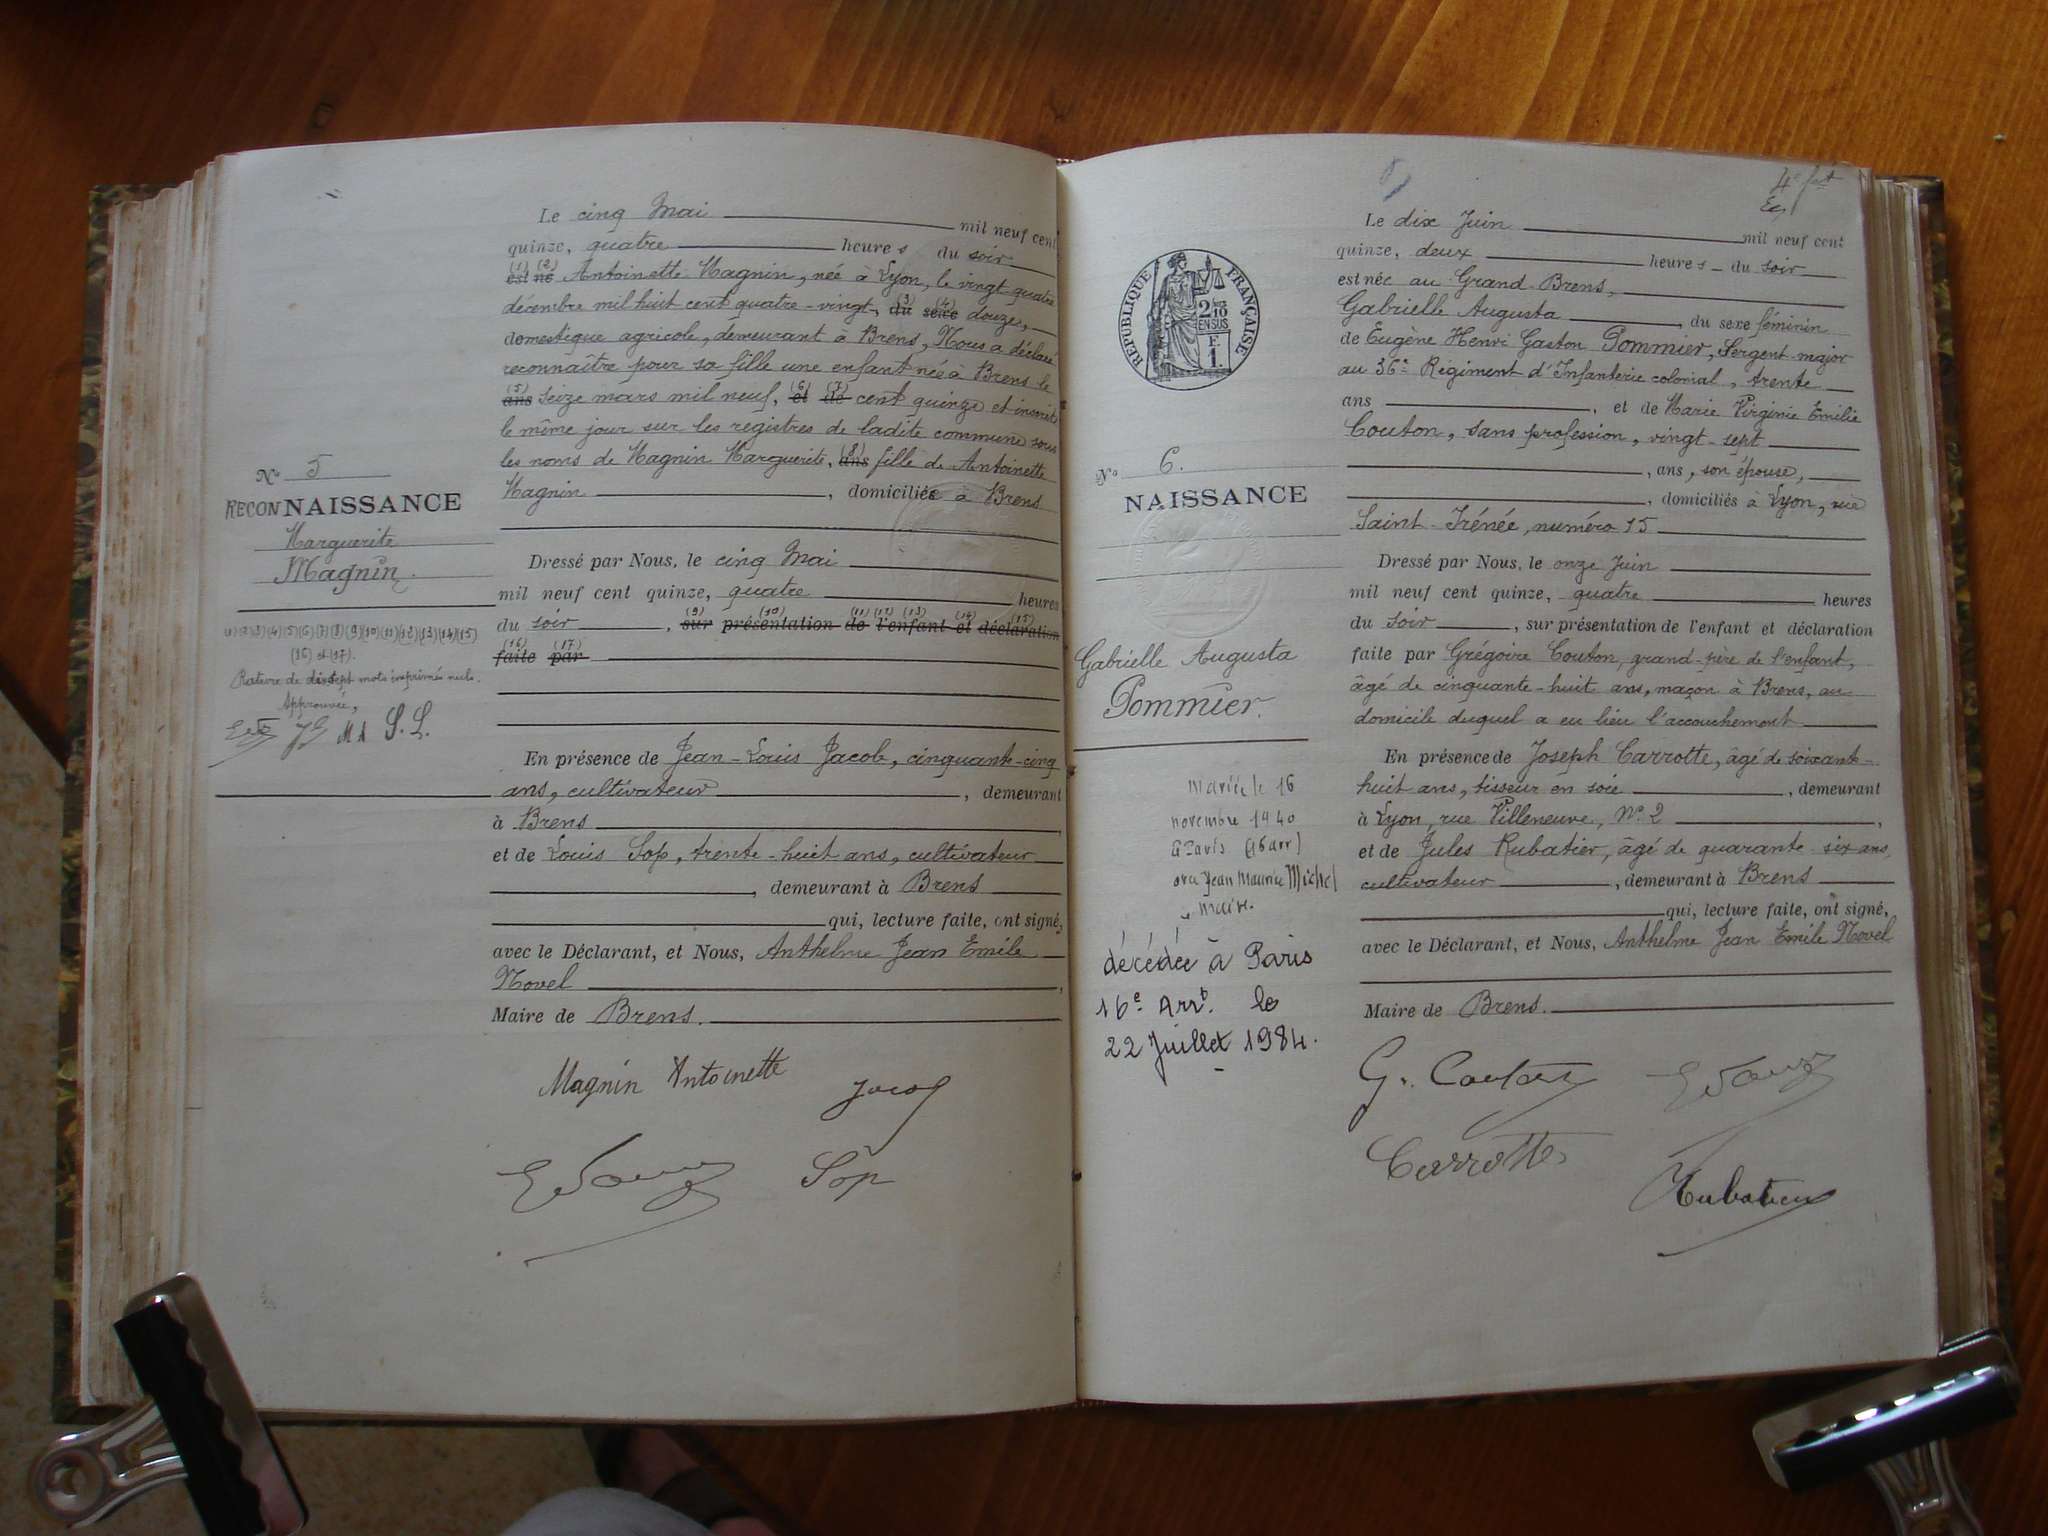 Le cinq Mai mil neuf cent
quinze, quatre heures du soir
(1) (2)
est né Antoinette Magnin, née à Lyon, le vingt-quatre
(3) (4)
décembre mil huit cent quatre-vingt-, du sexe douze,
domestique agricole, demeurant à Brens, Nous a déclaré
reconnaître pour sa fille une enfant née à Brens le
(5) (6) (7)
ans seize mars mil neuf, et de cent quinze et inscrite
le même jour sur les registres de ladite commune sous
(8)
les noms de Magnin Marguerite, ans fille de Antoinette
Magnin, domiciliée à Brens
Nº 5
RECONNAISSANCE
Marguerite
Magnin.
(1)(2)(3)(4)(5)(6)(7)(8)(9)(10)(11)(12)(13)(14)(15)
(16) et (17).
Rature de dix sept mots imprimés nuls.
Approuvée,
JL MA S.L.
Dressé par Nous, le cinq Mai
mil neuf cent quinze, quatre heures
(9) (10) (11) (12) (13) (14) (15)
du soir, sur présentation de l'enfant et déclaration
(16) (17)
faite par
En présence de Jean-Louis Jacob, cinquante-cinq
ans, cultivateur, demeurant
à Brens,
et de Louis Sop, trente-huit ans, cultivateur
, demeurant à Brens
qui, lecture faite, ont signé,
avec le Déclarant, et Nous, Anthelme Jean Emile
Novel,
Maire de Brens.
Magnin Antoinette Jacob
Sop
4e fet
Le dix Juin mil neuf cent
quinze, deux heures du soir
est née au Grand-Brens,
Gabrielle Augusta, du sexe féminin
de Eugène Henri Gaston Pommier, Sergent-major
au 36e Régiment d'Infanterie colonial, trente
ans, et de Marie Virginie Emilie
Couton, sans profession, vingt-sept
, ans, son épouse,
, domiciliés à Lyon, rue
Saint-Irénée, numéro 15
RÉPUBLIQUE FRANÇAISE
2/10 EN SUS
F
1
Nº 6.
NAISSANCE
Gabrielle Augusta
Pommier.
Mariée le 16
novembre 1940
à Paris (16 arr)
avec Jean Maurice Michel
décédée à Paris
16e Arrt. le
22 Juillet 1984.
Dressé par Nous, le onze Juin
mil neuf cent quinze, quatre heures
du soir, sur présentation de l'enfant et déclaration
faite par Grégoire Couton, grand-père de l'enfant,
âgé de cinquante-huit ans, maçon à Brens, au
domicile duquel a eu lieu l'accouchement
En présence de Joseph Carrotte, âgé de soixante-
huit ans, tisseur en soie, demeurant
à Lyon, rue Villeneuve, Nº 2,
et de Jules Rubatier, âgé de quarante-six ans,
cultivateur, demeurant à Brens
qui, lecture faite, ont signé,
avec le Déclarant, et Nous, Anthelme Jean Emile Novel
Maire de Brens.
G. Couton
Carrotte
Rubatier